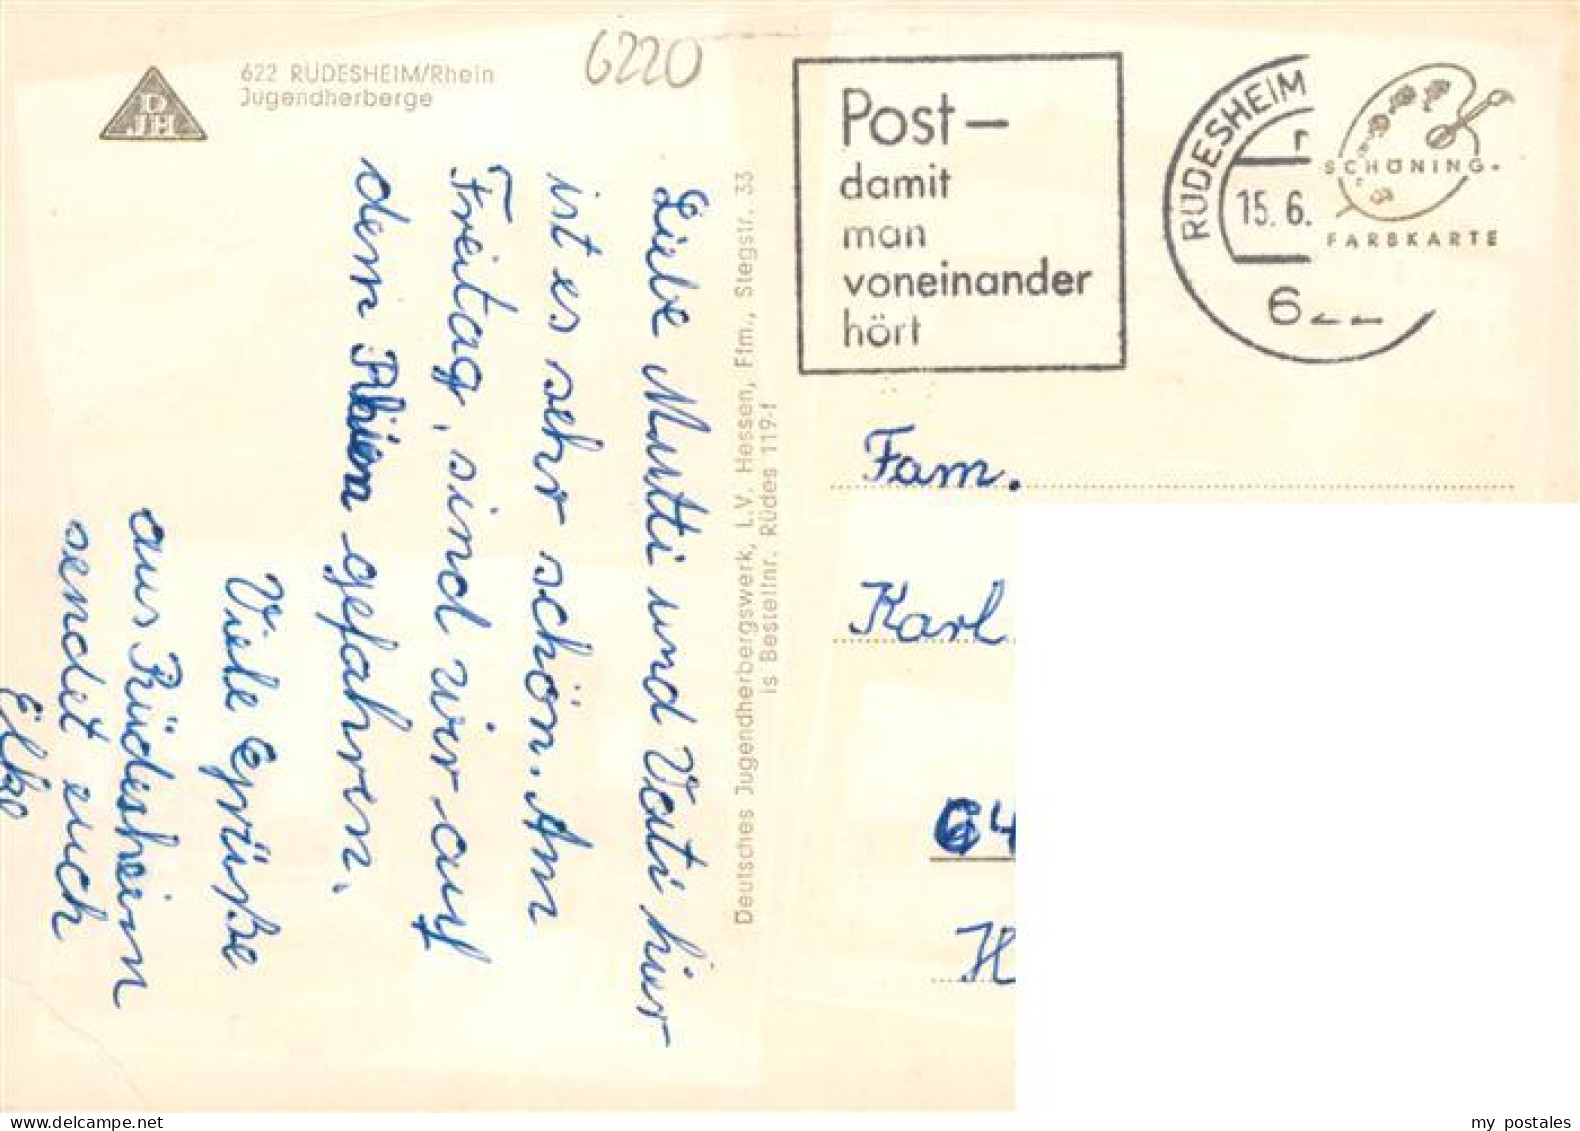 622 RÜDESHEIM/Rhein
Jugendherberge
6220
DJH
Liebe Mutti und Vati hier
ist es sehr schön. Am
Freitag, sind wir auf
dem Rhein gefahren.
Viele Grüße
aus Rüdesheim
sendet euch
Elke
Deutsches Jugendherbergswerk, L.V. Hessen, Ffm., Stegstr. 33
is Bestellnr. Rüdes 119-f
Post–
damit
man
voneinander
hört
RÜDESHEIM
15.6.
6
SCHÖNING-
FARBKARTE
Fam.
Karl
64
H
my postales